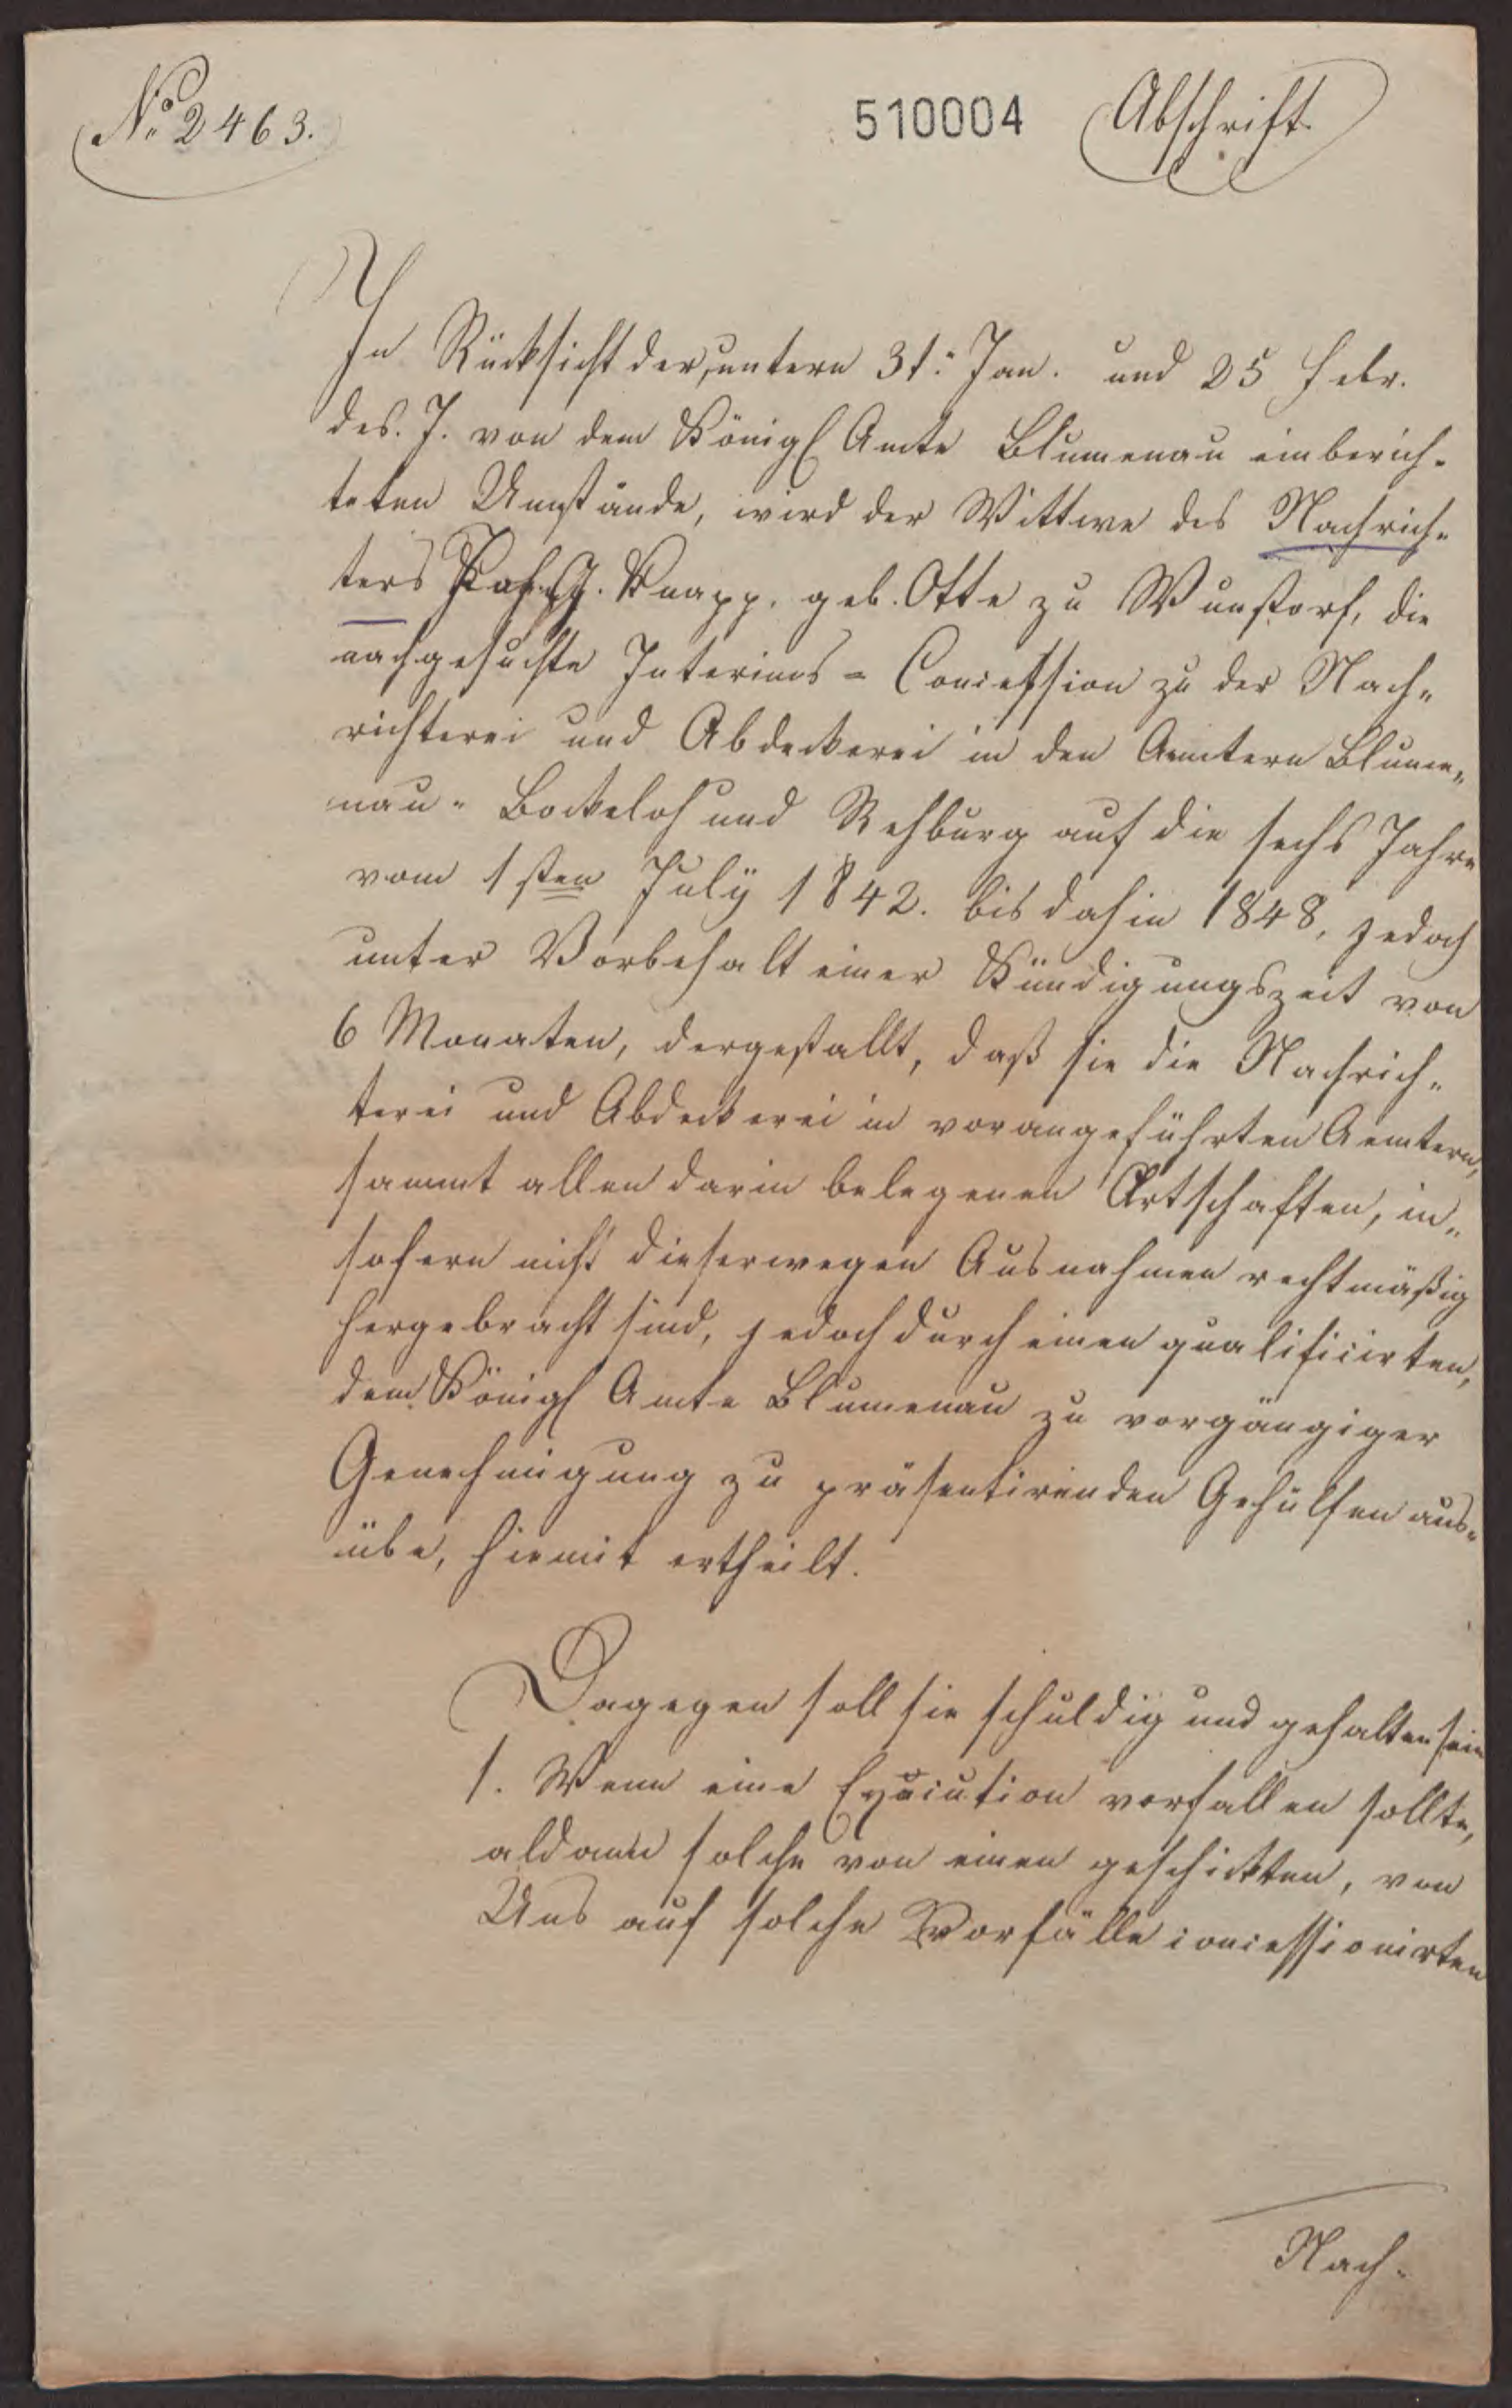 No. 2463.
510004 Abschrift
In Rücksicht der, untern 31. Jan. und 25 Febr.
des. J. von dem Königl Amte Blumenau einberich-
teten Umstände, wird der Wittwe des Nachrich-
ters Joh. G. Knapp, geb. Otte zu Wunstorf, die
nachgesuchte Interims-Concession zu der Nach-
richterei und Abdeckerei in den Aemtern Blume-
nau-Bockeloh und Rehburg auf die sechs Jahre
vom 1sten July 1842. bis dahin 1848, jedoch
unter Vorbehalt einer Kündigungszeit von
6 Monaten, dergestallt, daß sie die Nachrich-
terei und Abdeckerei in vorangeführten Aemtern,
sammt allen darin belegenen Ortschaften, in-
sofern nicht dieserwegen Ausnahmen rechtmäßig
hergebracht sind, jedoch durch einen qualificirten,
dem Königl Amte Blumenau zu vorgängiger
Genehmigung zu präsentirenden Gehülfen aus-
übe, hiemit ertheilt.
Dagegen soll sie schuldig und gehalten sein
1. Wenn eine Execution vorfallen sollte,
aldann solche von einen geschickten, von
Uns auf solche Vorfälle concessionirten
Nach-